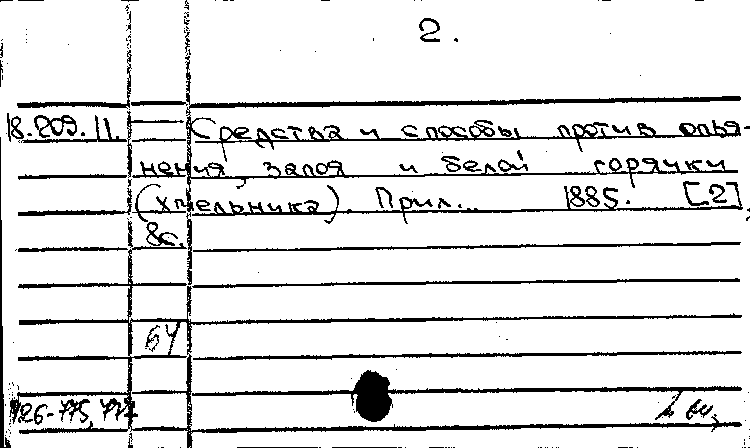 2.
18.209.11. Средства и способы против опья-
нения, запоя и белой горячки
(хмельника). Прил... 1885. [2],
8с.
64